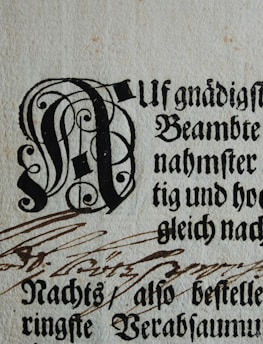 AUf gnädigst
Beambte
nahmster
tig und hoc
gleich nach
Nachts / also bestelle
ringste Verabsaumu